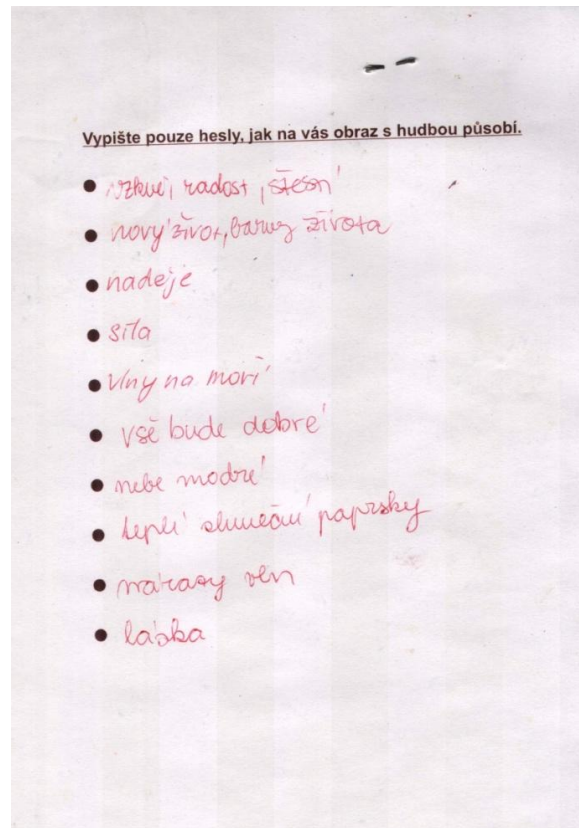 Vypište pouze hesly, jak na vás obraz s hudbou působí.
radost,
nový život, barvy života
naděje
síla
vlny na moři
vše bude dobré
nebe modré
teplé sluneční paprsky
nárazy vln
láska